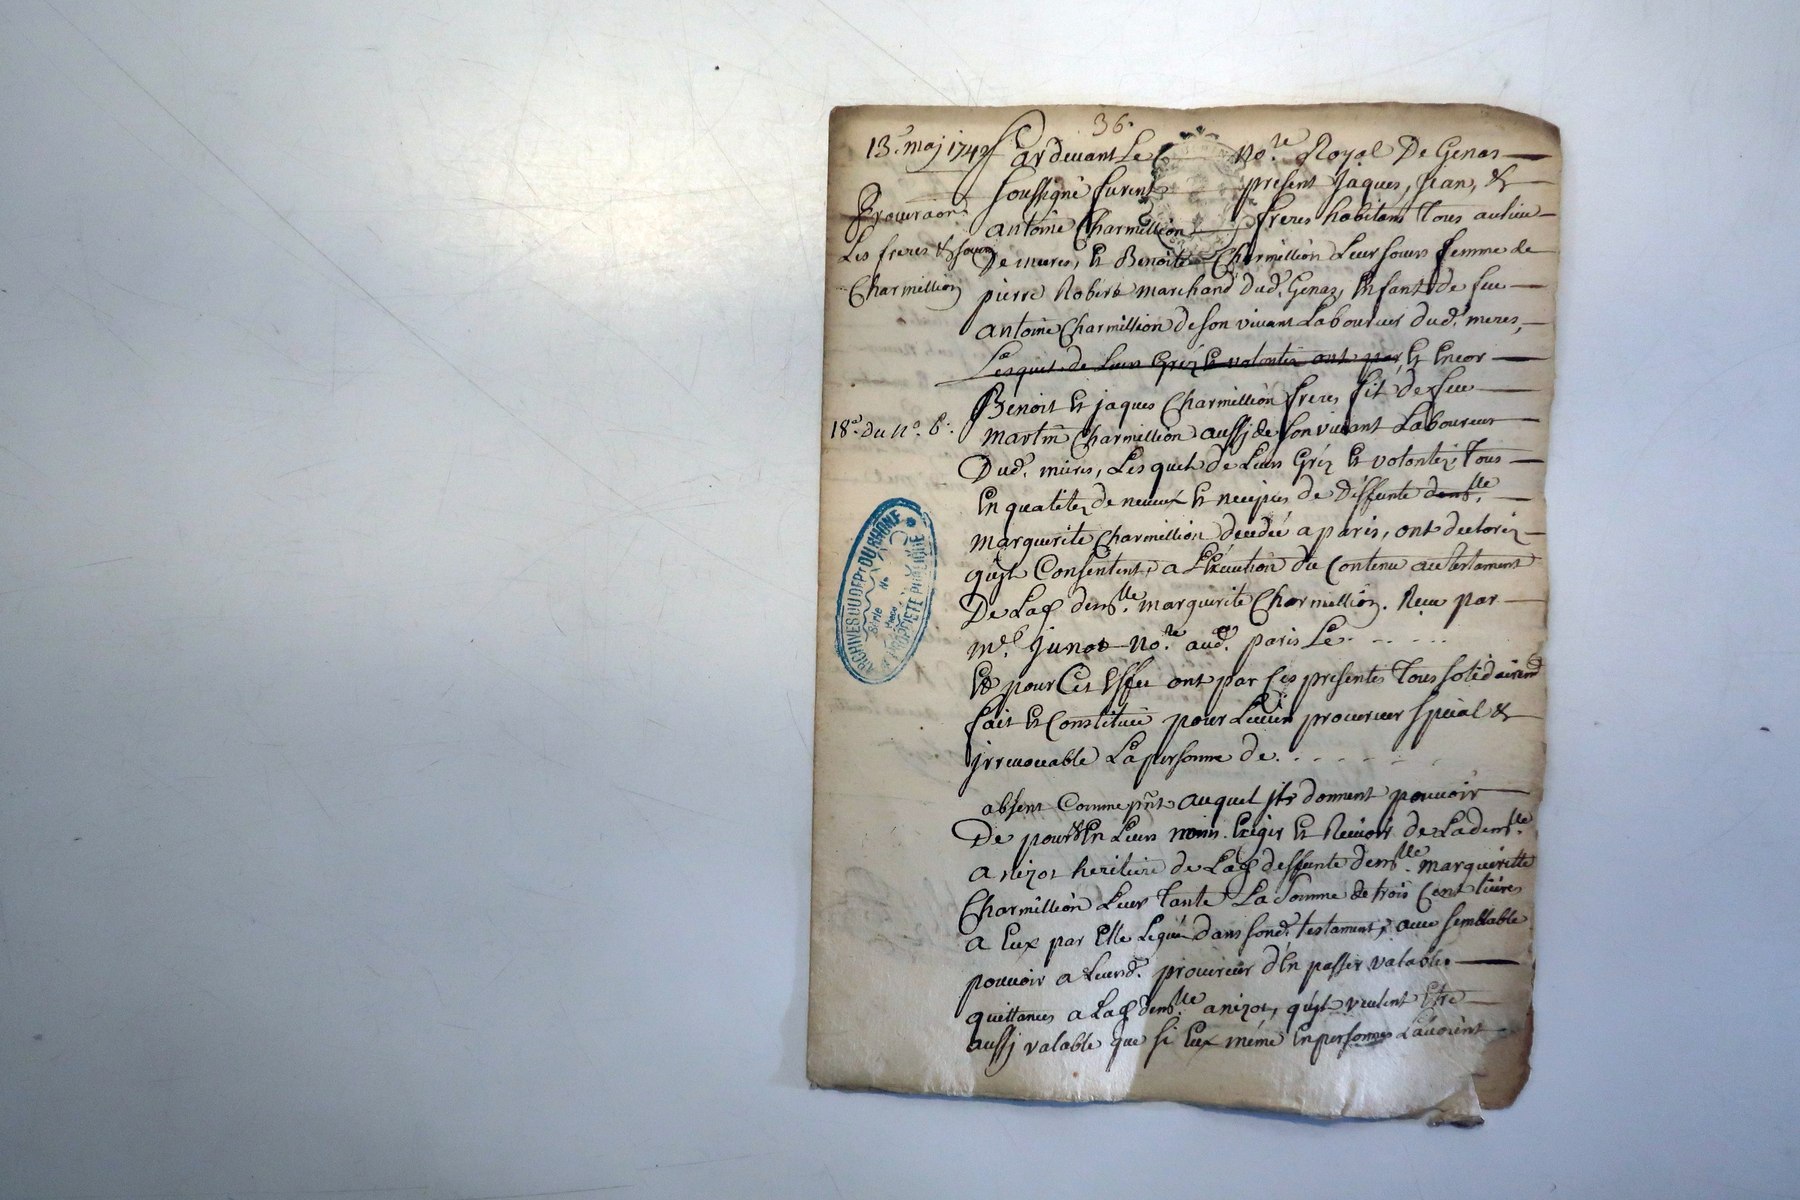 36.
13.e maj 1742
Procuraon
Les freres & soeur
Charmillion
18.e du n.o 6.
Par devant Le no.re Royal De Genas
soussigné furent present Jaques, Jean, &
antoine Charmillion freres habitans Tous au lieu
De mures, et Benoite Charmillion Leur soeur femme de
pierre Robert marchand dud. Genas, Enfants de feu
antoine Charmillion de son vivant Laboureur dud. mures,
Lesquels de Leurs Gréz Et volontéz ont par Et Encor
Benoit Et jaques Charmillion freres fils de feu
martin Charmillion aussj de son vivant Laboureur
Dud. mures, Lesquels de Leurs Gréz Et volontéz, Tous
En qualitéz de neveux Et de deffunte demlle.
marguerite Charmillion decedée a paris, ont declaréz
qujls Consentent, a L'Exécution du Contenu au testament
De Lad. demlle. marguerite Charmillion. Receu par
me. junot no.re aud. paris Le. - - ...
Et pour Cet Effet ont par Ces presentes Tous solidairemt
fait Et Constitué pour Leur procureur special &
jrrevocable La personne de. . - - - -
absent Comme pñt auquel jls donnent pouvoir
De pour & En Leurs noms. Exiger Et Recevoir de La demlle.
anizot heritiere de Lad. deffunte demlle. marguerite
Charmillion Leur Tante La Somme de trois Cent livres
a Eux par Elle Legué dans sond. testament, avec semblable
pouvoir a Leurd. procureur d'En passer valable
quittances a Lad. demlle. anizot, qujls veulent Etre
aussj valable que si Eux même En personnes L'avoient
ARCHIVES DU DEPT DU RHONE
PROPRIETE PUBLIQUE